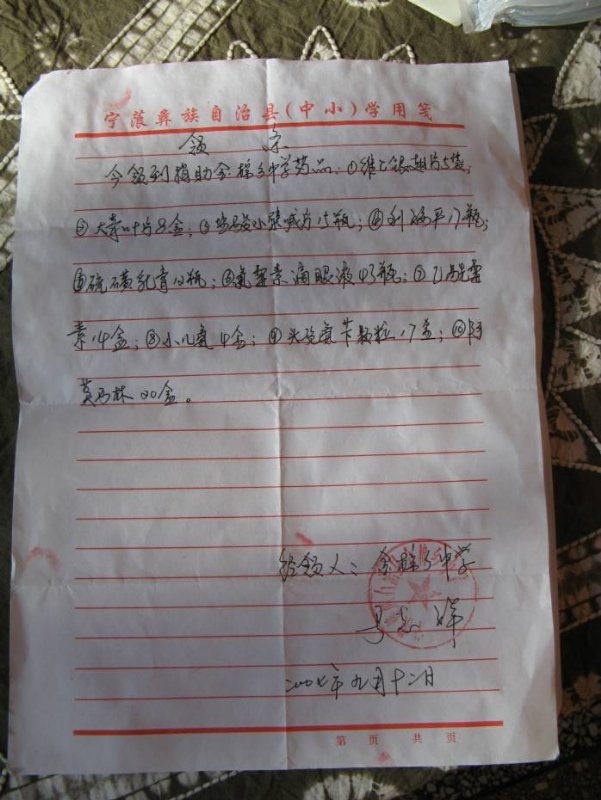 宁蒗彝族自治县(中小)学用笺
领条
今领到捐助金棉乡中学药品:①维C银翘片5袋,
②大青叶片8盒;③盐酸小檗碱片15瓶;④利福平17瓶;
⑤硫磺乳膏12瓶;⑥氯霉素滴眼液43瓶;⑦乙酰螺旋霉
素14盒;⑧小儿氨4盒;⑨头孢氨苄颗粒17盒;⑩阿
莫西林20盒。
经领人:金棉乡中学
马志
二00七年九月十二日
第 页 共 页